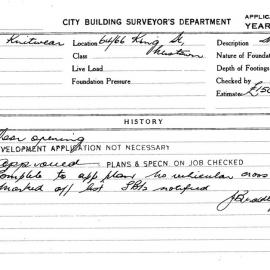 CITY BUILDING SURVEYOR'S DEPARTMENT
APPLIC
YEAR
Knitwear Location 64/66 King St, Description
Class Newtown Nature of Foundat
Live Load Depth of Footings
Foundation Pressure Checked by
Estimates £150
HISTORY
opening
DEVELOPMENT APPLICATION NOT NECESSARY
approved PLANS & SPECN. ON JOB CHECKED
Complete to app plan, no vehicular cross
marked off list notified